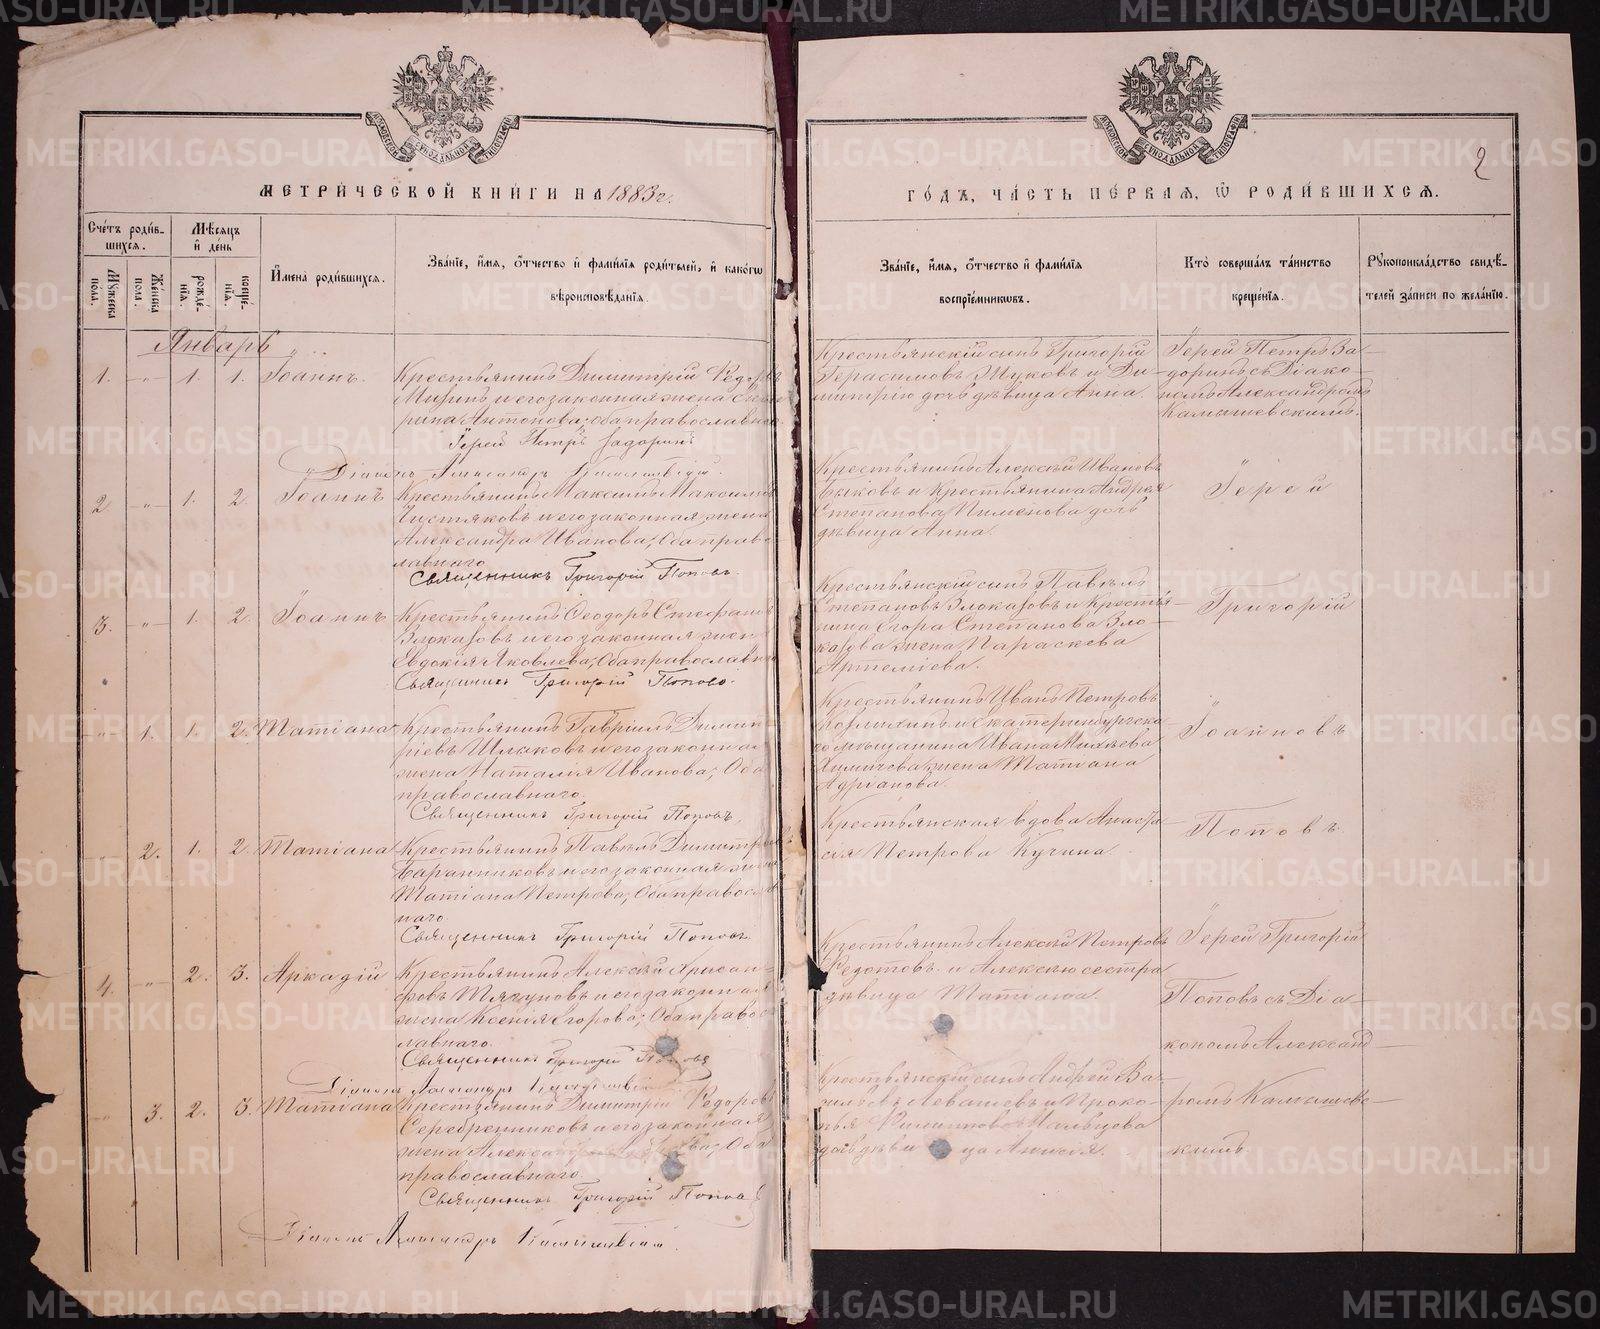 МЕТРИЧЕСКОЙ КНИГИ НА 1883 г.
Счетъ родившихся.
Мѣсяцъ и день
Мужеска пола.
Женска пола.
рожденія.
крещенія.
Имена родившихся.
Званіе, имя, отчество и фамилія родителей, и какогѡ
вѣроисповѣданія.
Январь
1. -„- 1. 1. Іоаннъ.
Крестьянинъ Димитрій Ѳедоровъ
и его законная жена
Антонова; оба православна
Іерей Петръ Задоринъ
Діаконъ Александръ Камышевскій.
2 -„- 1. 2. Іоаннъ
Крестьянинъ Максимъ Максимовъ
Чистяковъ и его законная жена
Александра Иванова; Оба право-
славнаго
Священникъ Григорій Поповъ.
3. -„- 1. 2. Іоаннъ
Крестьянинъ Ѳеодоръ Стефановъ
Злоказовъ и его законная жена
Евдокія Яковлева; Оба православна
Священникъ Григорій Поповъ.
-„- 1. 1. 2. Татіана
Крестьянинъ Гавріилъ Димит-
ріевъ и его законная
жена Наталія Иванова; Оба
православнаго.
Священникъ Григорій Поповъ.
2. 1. 2. Татіана
Крестьянинъ Павелъ Димитріев
Баранниковъ и его законная жена
Татіана Петрова; Оба правосла
внаго.
Священникъ Григорій Поповъ.
4. -„- 2. 3. Аркадій
Крестьянинъ Алексѣй Хрисан-
фовъ и его законная
жена Ксенія Егорова; Оба правос
лавнаго.
Священникъ Григорій Поповъ
Діаконъ Александръ Камышевскій
-„- 3. 2. 3. Татіана
Крестьянинъ Димитрій Ѳедоровъ
Серебренниковъ и его законная
жена Оба
православнаго.
Священникъ Григорій Поповъ
Діаконъ Александръ Камышевскій.
2
ГОДЪ, ЧАСТЬ ПЕРВАЯ, Ѡ РОДИВШИХСЯ.
Званіе, имя, отчество и фамилія
воспріемниковъ.
Кто совершалъ таинство
крещенія.
Рукоприкладство свидѣ-
телей записи по желанію.
Крестьянскій сынъ Григорій
Герасимовъ Жуковъ и Ди-
митрію дочь дѣвица Анна.
Іерей Петръ За-
доринъ съ Діако-
номъ Александромъ
Камышевскимъ.
Крестьянинъ Алексѣй Ивановъ
Быковъ и Крестьянина Андрея
Степанова Пименова дочь
дѣвица Анна.
Іерей
Крестьянскій сынъ Павелъ
Степановъ Злоказовъ и Крестья-
нина Егора Степанова Зло-
казова жена Параскева
Артеміева.
Григорій
Крестьянинъ Иванъ Петровъ
и Екатеринбургска-
го мѣщанина Ивана Михѣева
жена Татіана
Адріанова.
Іоанновъ
Крестьянская вдова Анаста-
сія Петрова Кучина.
Поповъ
Крестьянинъ Алексѣй Петровъ
Ѳедотовъ и Алексѣю сестра
дѣвица Татіана.
Іерей Григорій
Поповъ съ Діа-
кономъ Александ-
Крестьянскій сынъ Андрей Ва-
сильевъ Левашевъ и Проко-
пья Филиппова
дочь дѣвица Анисія.
ромъ Камышевс-
кимъ.
METRIKI.GASO-URAL.RU